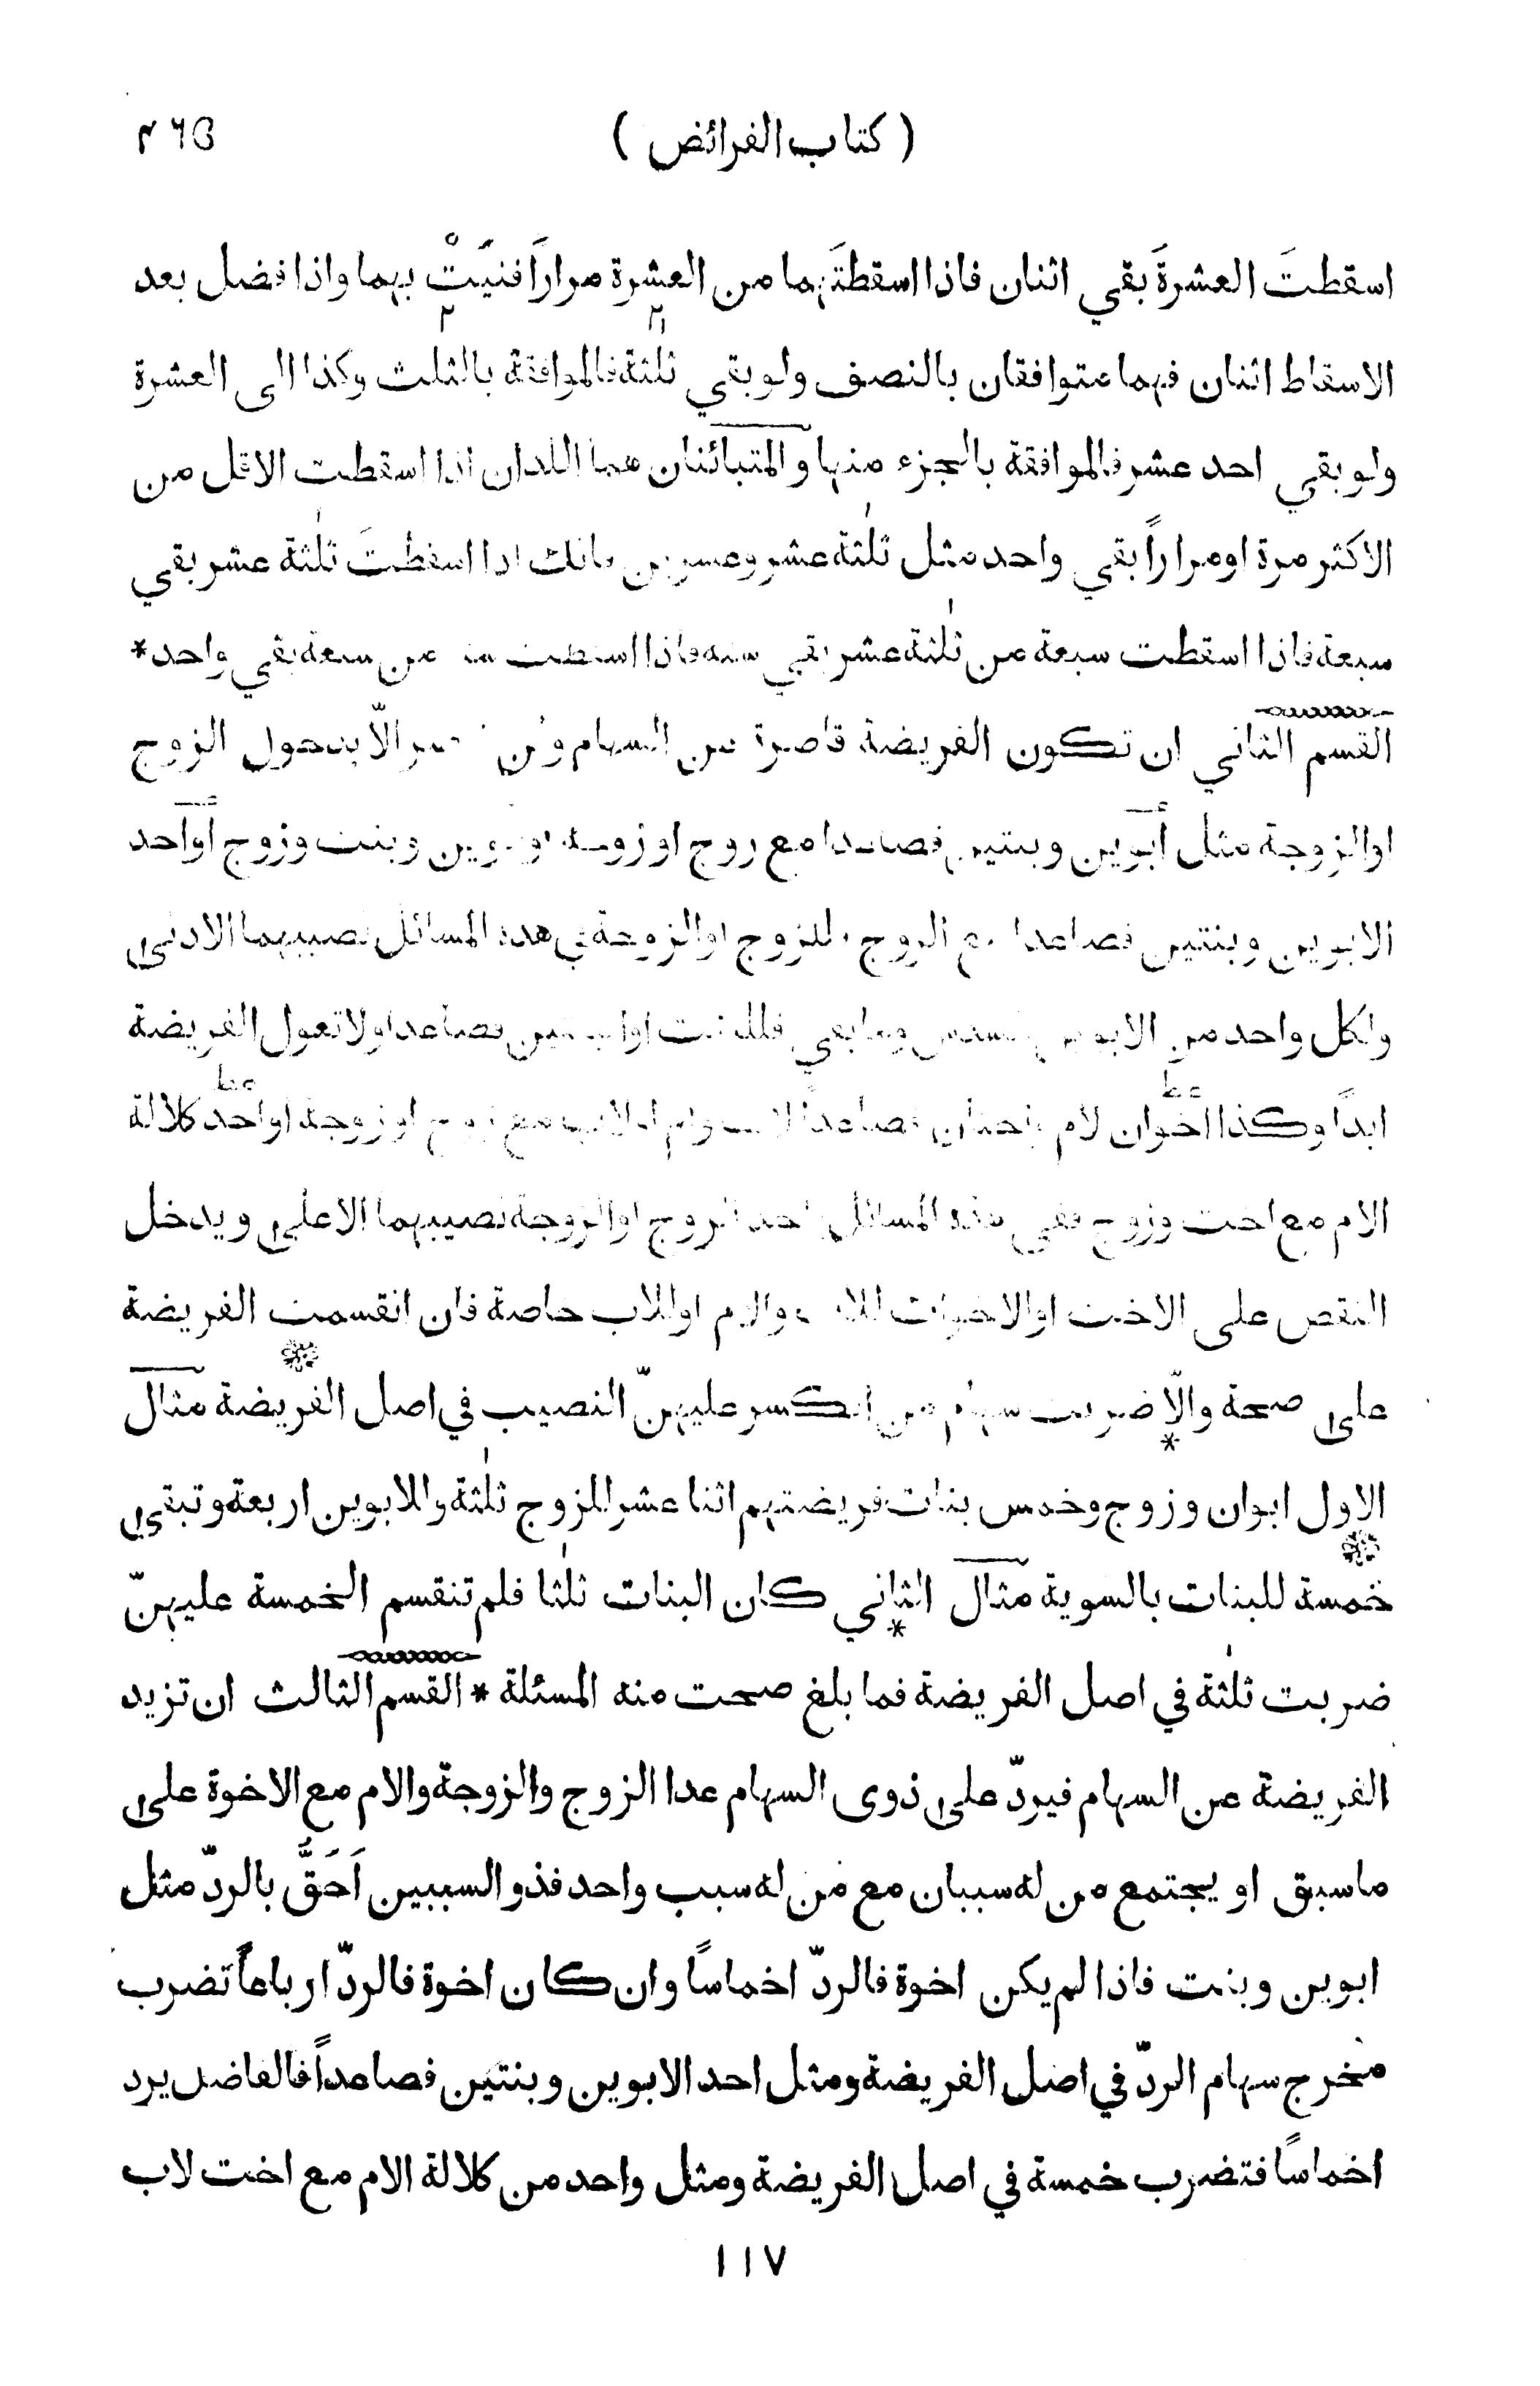 ( كتاب الفرائض )
اسقطتَ العشرةَ بقي اثنان فاذا اسقطتَهما من العشرة مراراً فنيَتْ بهما واذا فضل بعد
الاسقاط اثنان فهما متوافقان بالنصف ولو بقي ثلٰثة فالموافقة بالثلث وكذا الى العشرة
ولو بقي احد عشر فالموافقة بالجزء منها والمتبائنان هما اللذان اذا اسقطت الاقل من
الاكثر مرة او مراراً بقي واحد مثل ثلٰثة عشر وعشرين فانك اذا اسقطتَ ثلٰثة عشر بقي
سبعة فاذا اسقطت سبعة من ثلٰثة عشر بقي ستة فاذا اسقطت ستة من سبعة بقي واحد *
القسم الثاني ان تكون الفريضة قاصرة عن السهام ولن الّا بدخول الزوج
او الزوجة مثل أبوين وبنتين فصاعدا مع زوج او زوجة او ابوين وبنت وزوج أواحد
الابوين وبنتين فصاعدا مع الزوج فللزوج او الزوجة في هذه المسائل نصيبهما الادنى
ولكل واحد من الابوين السدس وما بقي فللبنت او البنتين فصاعدا ولا تعول الفريضة
ابداً وكذا اخوان لام واختان فصاعداً لاب وام او لاب مع زوج او زوجة او احد كلالة
الام مع اخت وزوج ففي هذه المسائل ياخذ الزوج او الزوجة نصيبهما الاعلى ويدخل
النقص على الاخت او الاخوات للاب والام او للاب خاصة فان انقسمت الفريضة
على صحة والّا ضربت سهام من انكسر عليهنّ النصيب في اصل الفريضة مثال
الاول ابوان وزوج وخمس بنات فريضتهم اثنا عشر للزوج ثلٰثة وللابوين اربعة وتبقى
خمسة للبنات بالسوية مثال الثاني كان البنات ثلٰثا فلم تنقسم الخمسة عليهنّ
ضربت ثلٰثة في اصل الفريضة فما بلغ صحت منه المسئلة * القسم الثالث ان تزيد
الفريضة عن السهام فيردّ على ذوى السهام عدا الزوج والزوجة والام مع الاخوة على
ما سبق او يجتمع من له سببان مع من له سبب واحد فذو السببين اَحَقُّ بالردّ مثل
ابوين وبنت فاذا لم يكن اخوة فالردّ اخماساً وان كان اخوة فالردّ ارباعاً تضرب
مخرج سهام الردّ في اصل الفريضة ومثل احد الابوين وبنتين فصاعداً فالفاضل يرد
اخماساً فتضرب خمسة في اصل الفريضة ومثل واحد من كلالة الام مع اخت لاب
١١٧